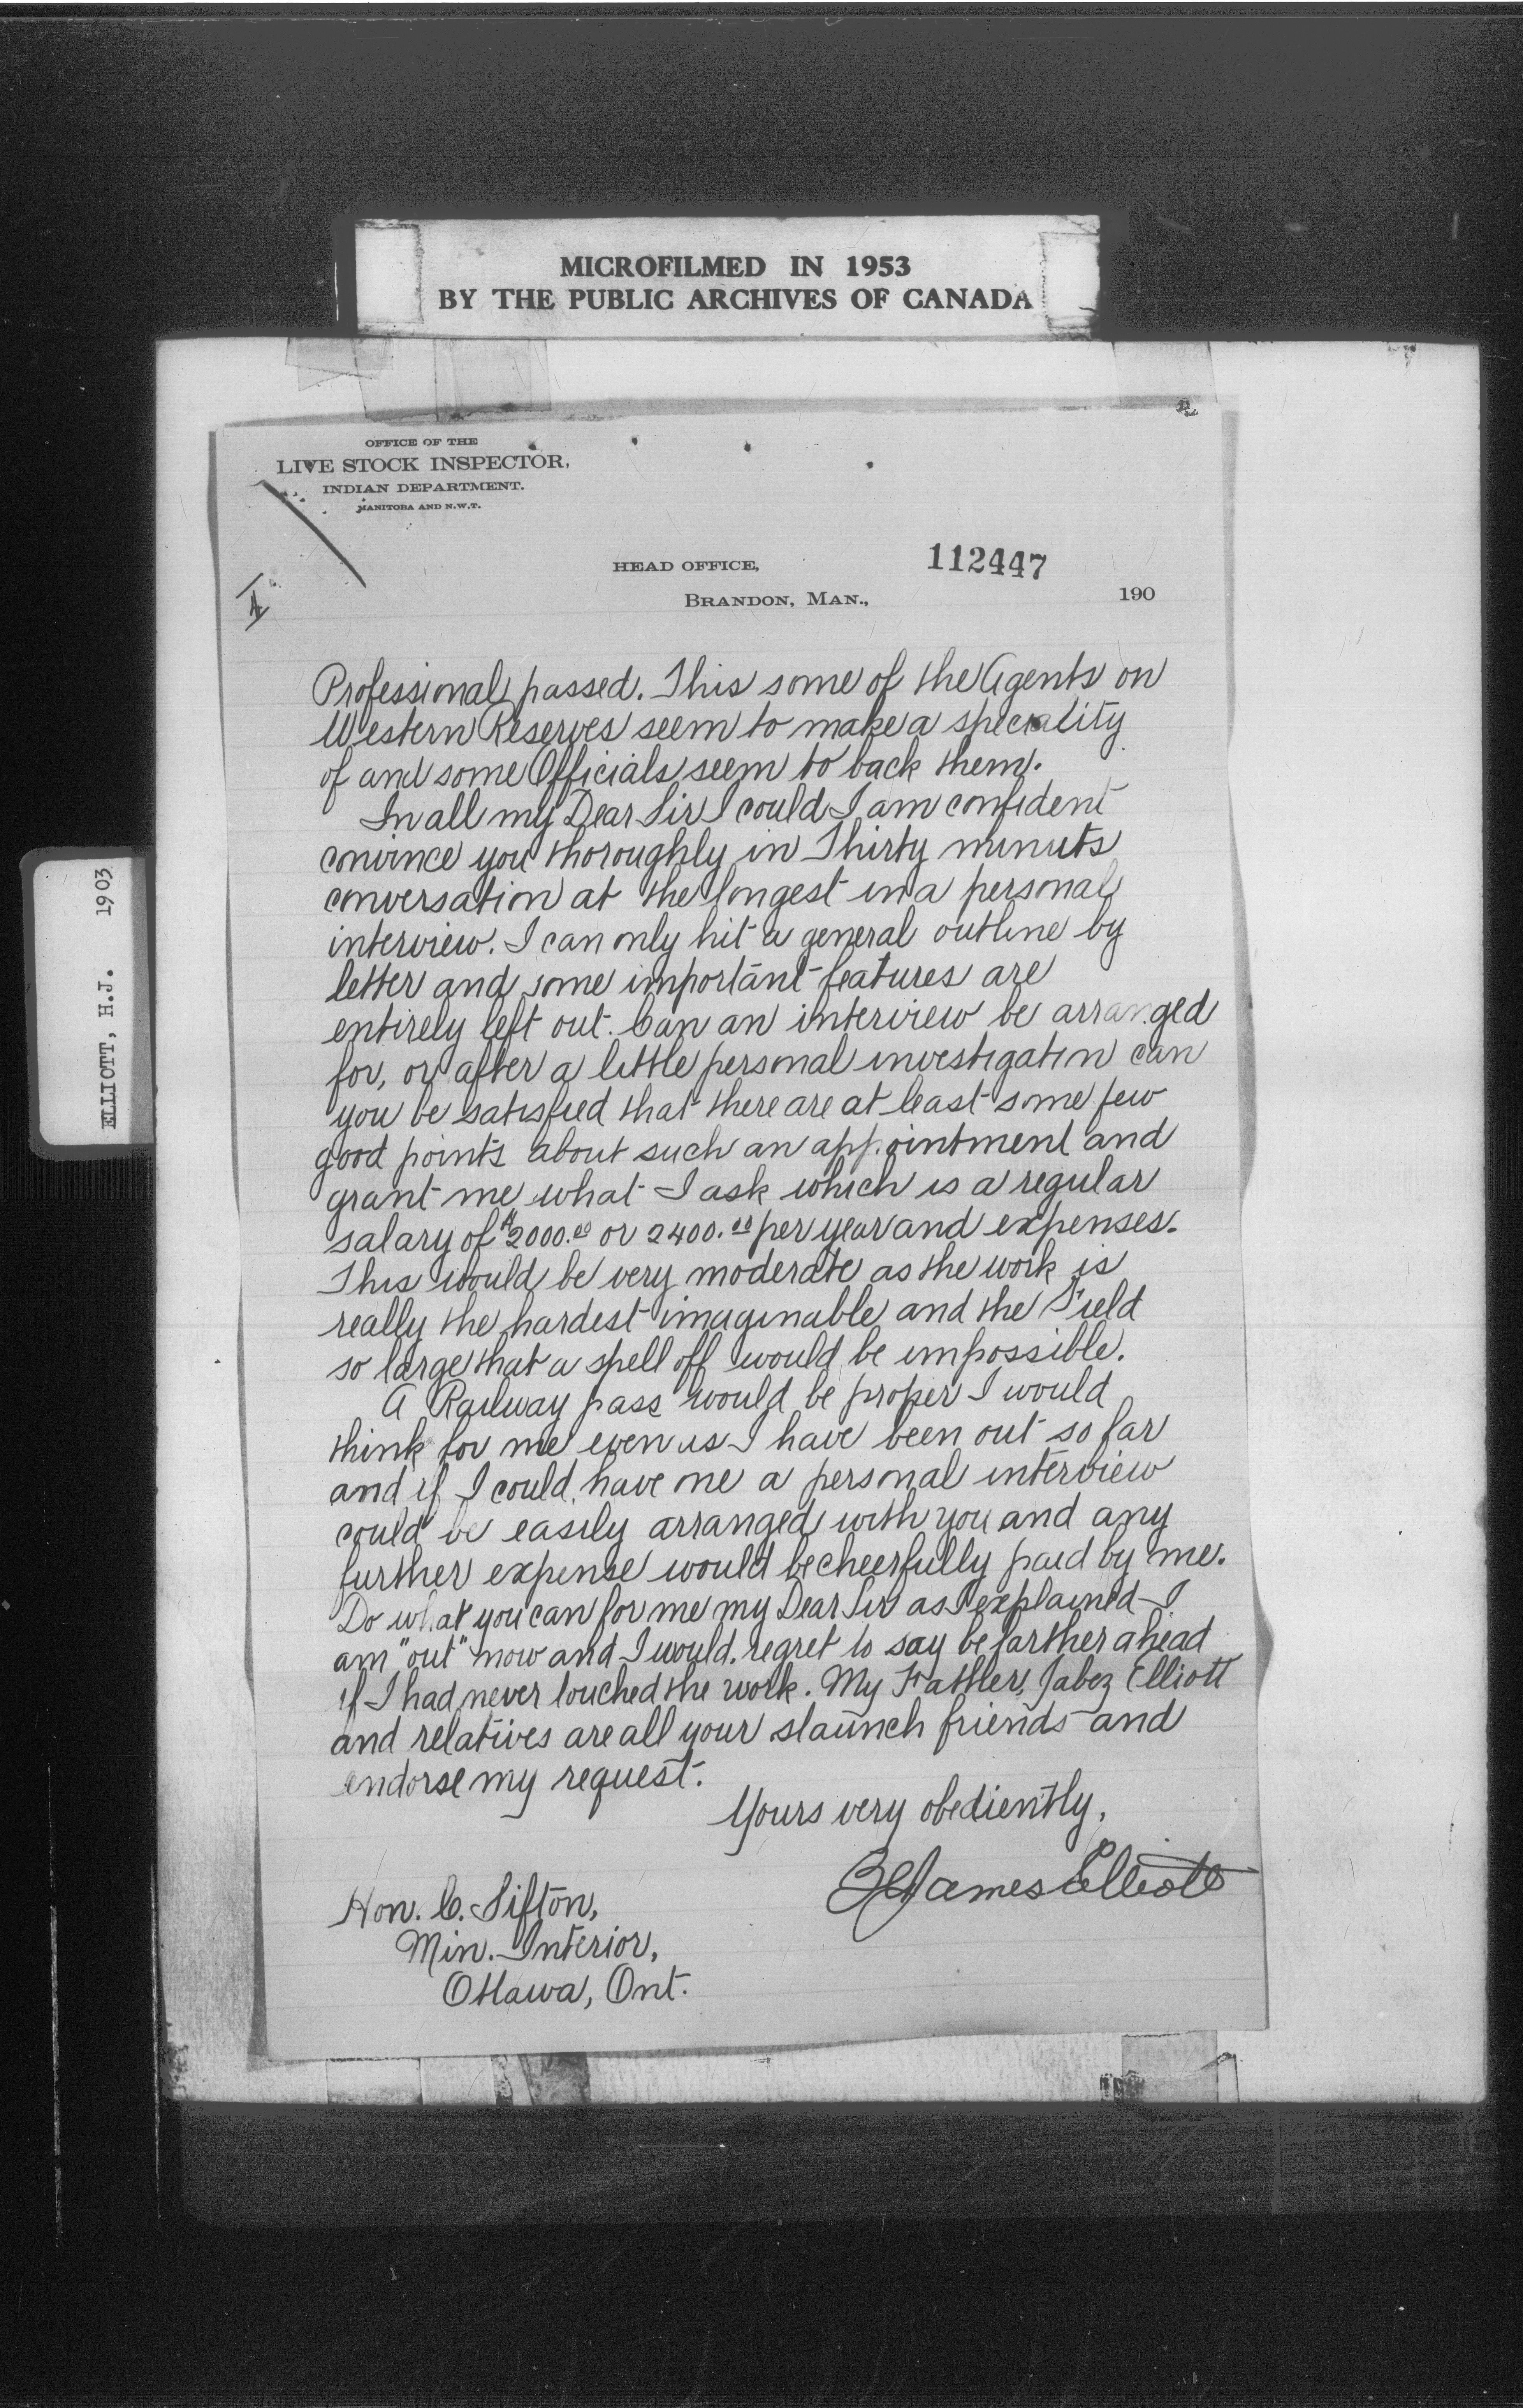 MICROFILMED IN 1953
BY THE PUBLIC ARCHIVES OF CANADA
ELLIOTT, H.J. 1903
OFFICE OF THE
LIVE STOCK INSPECTOR,
INDIAN DEPARTMENT.
MANITOBA AND N.W.T.
HEAD OFFICE,
112447
BRANDON, MAN.,
190
Professional passed. This some of the Agents on
Western Reserves seem to make a speciality
of and some Officials seem to back them.
In all my Dear Sir I could I am confident
convince you thoroughly in Thirty minuts
conversation at the longest in a personal
interview. I can only hit a general outline by
letter and some important features are
entirely left out. Can an interview be arranged
for, or after a little personal investigation can
you be satisfied that there are at least some few
good points about such an appointment and
grant me what I ask which is a regular
salary of $2000.00 or 2400.00 per year and expenses.
This would be very moderate as the work is
really the hardest imaginable and the Field
so large that a spell off would be impossible.
A Railway pass would be proper I would
think for me even as I have been out so far
and if I could have one a personal interview
could be easily arranged with you and any
further expense would be cheerfully paid by me.
Do what you can for me my Dear Sir as I explained I
am "out" now and I would regret to say be farther ahead
if I had never touched the work. My Father, Jabez Elliott
and relatives are all your staunch friends and
endorse my request.
Yours very obediently,
James Elliott
Hon. C. Sifton,
Min. Interior,
Ottawa, Ont.